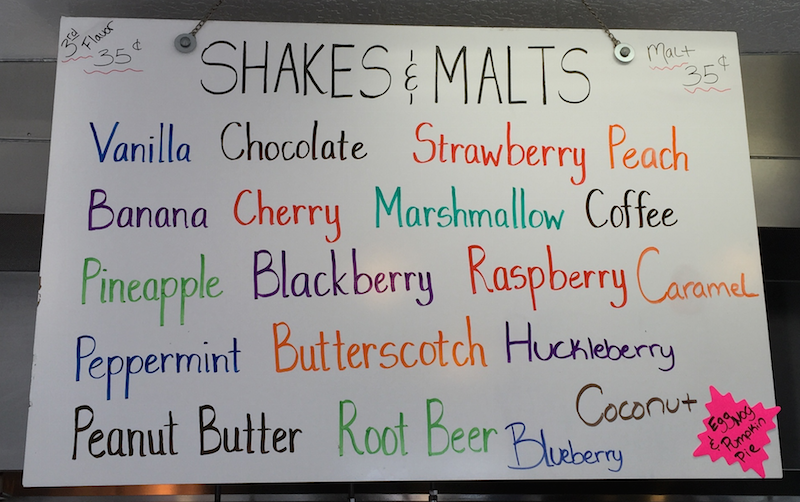 3rd Flavor
35¢
SHAKES & MALTS
Malt
35¢
Vanilla Chocolate Strawberry Peach
Banana Cherry Marshmallow Coffee
Pineapple Blackberry Raspberry Caramel
Peppermint Butterscotch Huckleberry
Peanut Butter Root Beer Blueberry Coconut
Egg Nog
& Pumpkin
Pie